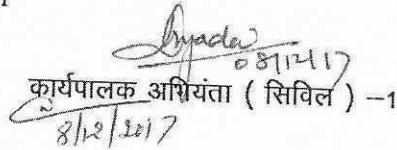 08/12/17
कार्यपालक अभियंता ( सिविल ) –1
8/12/2017